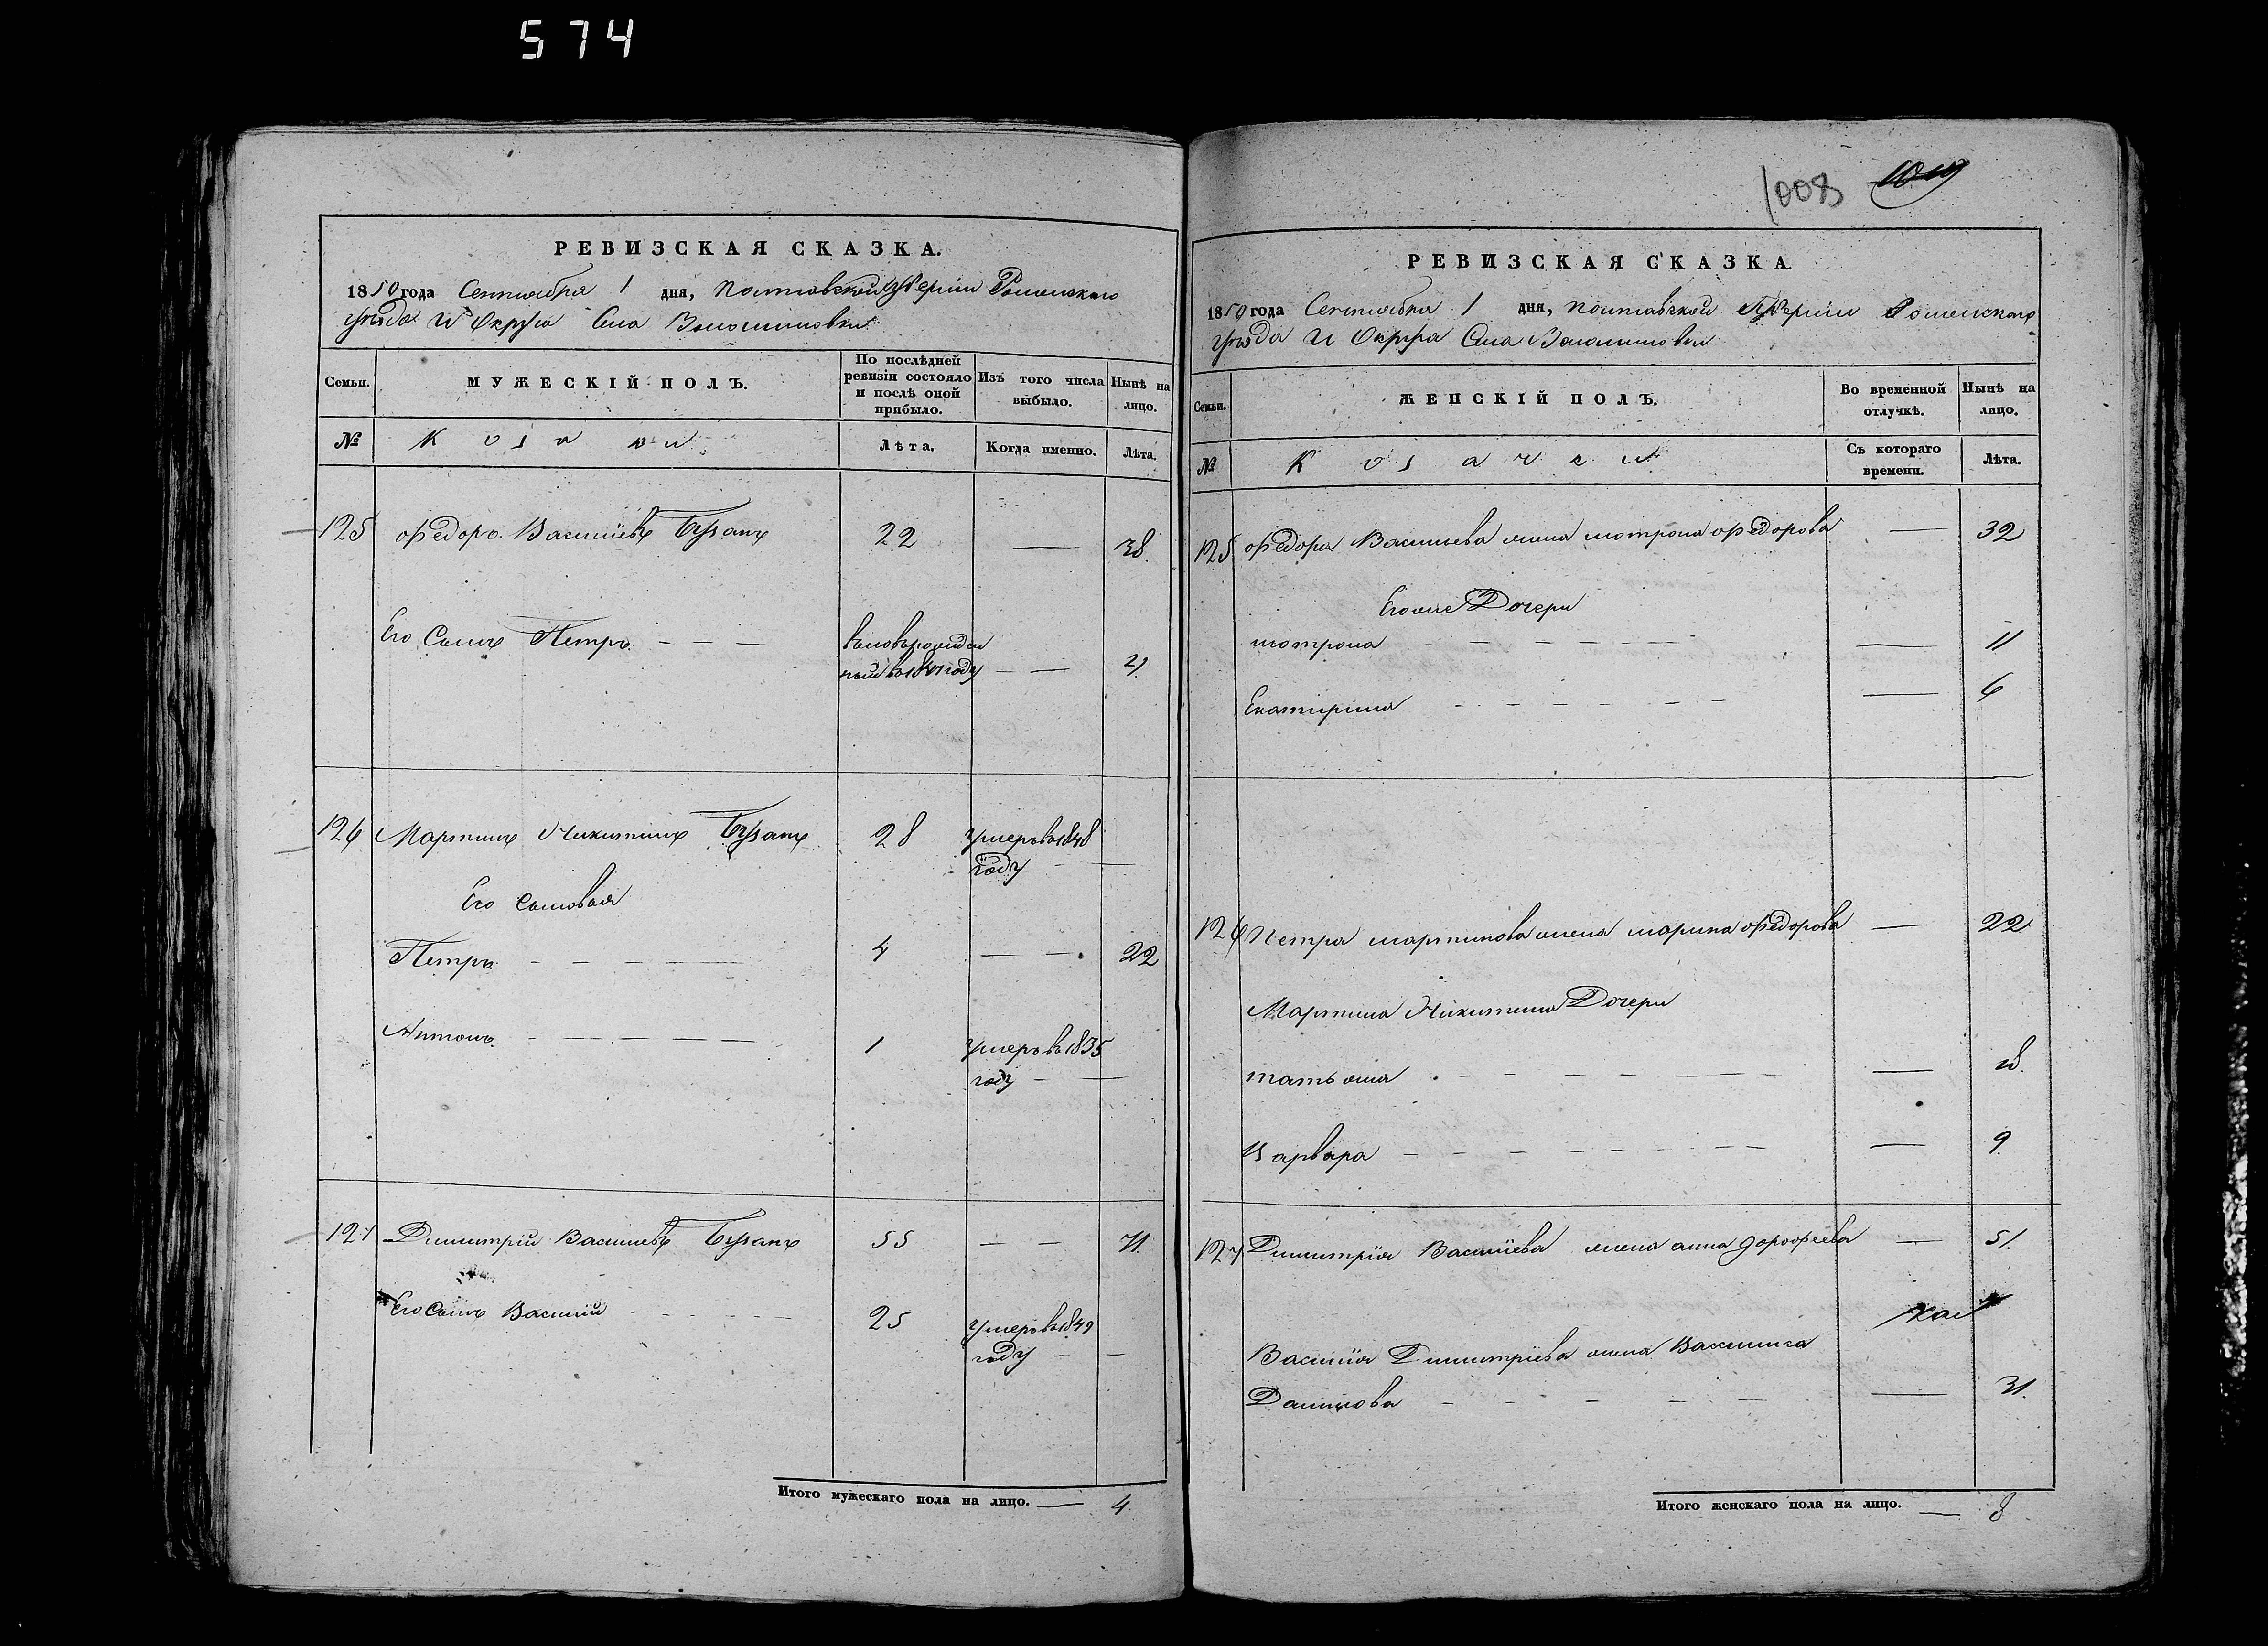 574
РЕВИЗСКАЯ СКАЗКА.
1850 года Сентября 1 дня, Полтавской Губерніи Роменскаго
уѣзда и Округа Села Волошиновки
Семьи.
МУЖЕСКІЙ ПОЛЪ.
По послѣдней ревизіи состояло и послѣ оной прибыло.
Изъ того числа выбыло.
Нынѣ на лицо.
№
Козаки
Лѣта.
Когда именно.
Лѣта.
125 Федоръ Васильевъ Бузанъ 22 — 38
Его Сынъ Петръ — — — новорожден
ный въ 1841 году — —
126 Мартинъ Никитинъ Бузанъ 28 умеръ въ 1848
году — —
Его Сыновья
Петръ — — — — 4 — — 22
Антонъ — — — — — 1 умеръ въ 1835
году — —
127 Димитрій Васильевъ Бузанъ 55 — — 71
Его Сынъ Василій — — — — 25 умеръ въ 1849
году — —
Итого мужескаго пола на лицо. — 4
1008
РЕВИЗСКАЯ СКАЗКА.
1850 года Сентября 1 дня, Полтавской Губерніи Роменскаго
уѣзда и Округа Села Волошиновки
Семьи.
ЖЕНСКІЙ ПОЛЪ.
Во временной отлучкѣ.
Нынѣ на лицо.
№
Козачки
Съ котораго времени.
Лѣта.
125 Федора Васильева жена мотрона Федорова — 32
Его же Дочери
мотрона — — — — — — — 11
Екатерина — — — — — — — 6
126 Петра мартинова жена марина Федорова — 22
Мартина Никитина Дочери
татьяна — — — — — — — 18
Варвара — — — — — — — — 9
127 Димитрія Васильева жена анна дорофеева — 51
Василія Димитріева жена Василиса
Данилова — — — — — — 31
Итого женскаго пола на лицо. — 8